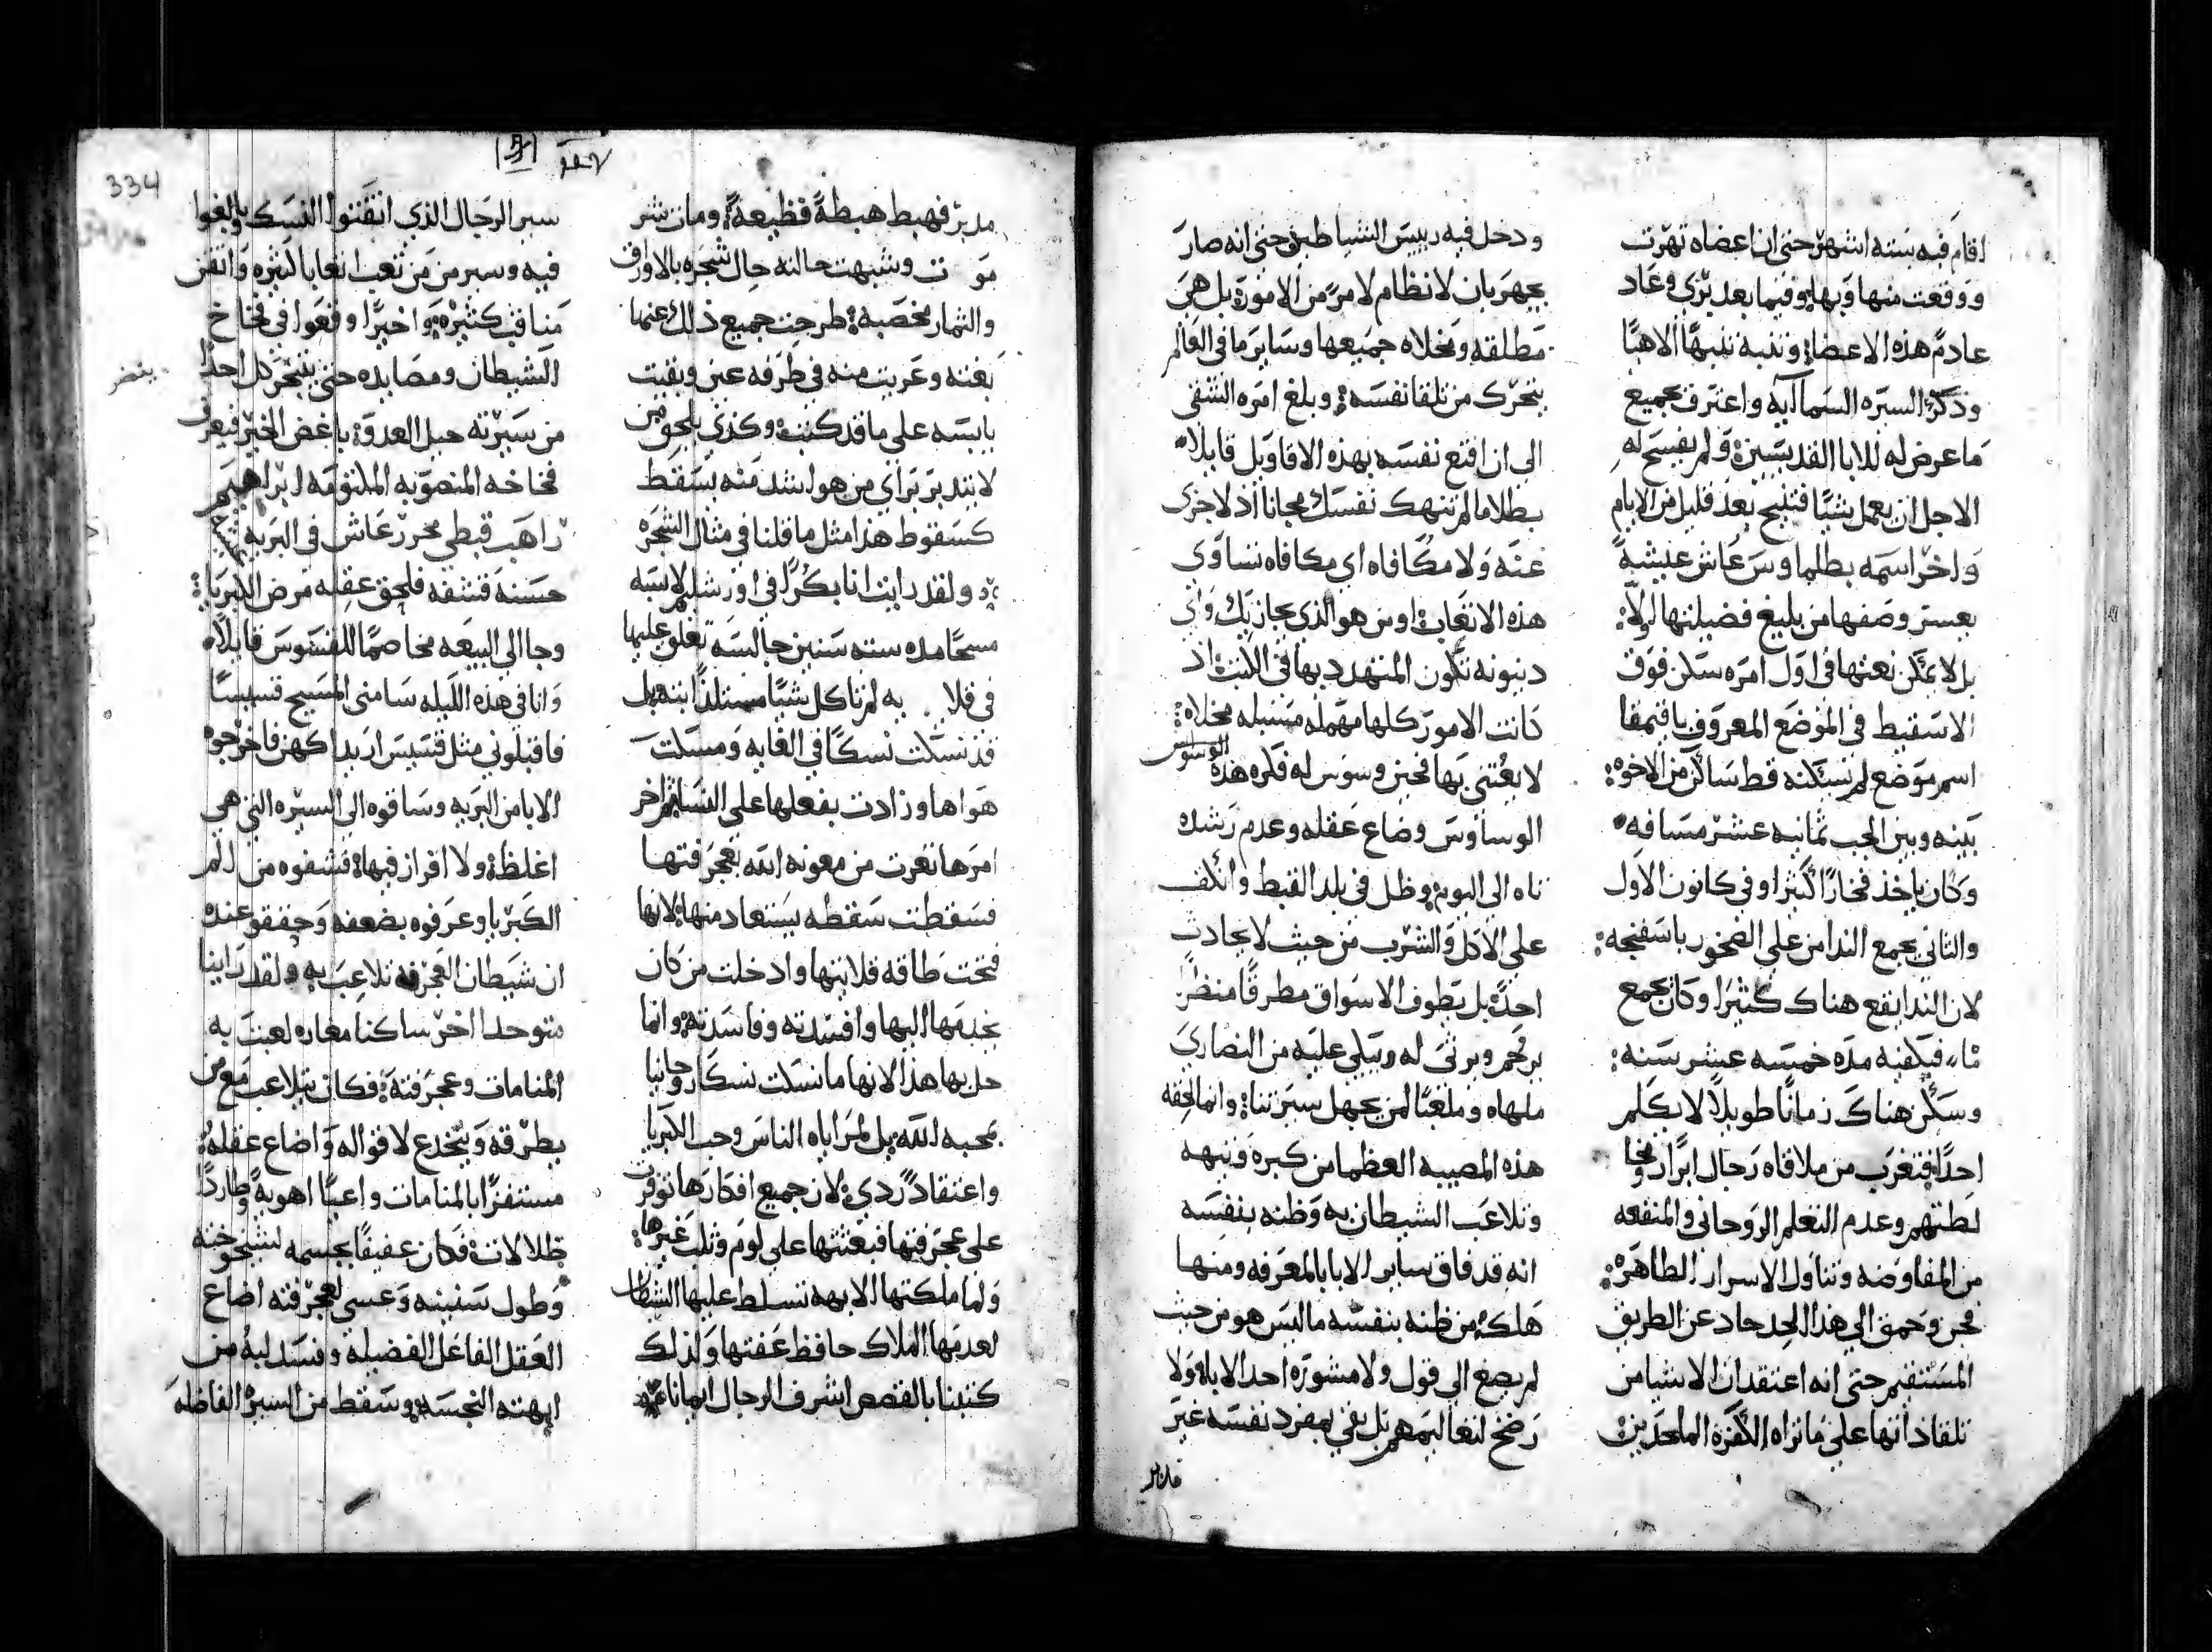 اقام فيه ستة اشهر حتى ان اعضاه تهرت
ووقعت منها وبها وفيما بعد بري وعاد
عادم هذه الاعضا ونبه نبها الاهيا
وذكر السيره السماايه واعترف بجميع
ما عرض له للابا القديسين ولم يفسح له
الاجل ان يعمل شيا فتنيح بعد قليل من الايام
واخر اسمه بطلما وس عاش عيشة
يعسر وصفها من بليغ فضيلتها اولا
بل لا يمكن نعتها في اول امره سكن فوق
الاسقيط في الموضع المعروف باقيمقا
اسم موضع لم يسكنه قط ساكن من الاخوه
بينه وبين الجب ثمانيه عشر مسافه
وكان ياخذ فخارا كثيرا وفي كانون الاول
والثاني يجمع الندا من على الصخور باسفنجه
لان الندا يقع هناك كثيرا وكان يجمع
ماء فيكفيه مدة خمسه عشر سنه
وسكن هناك زمانا طويلا لا يكلم
احدا فتغرب من ملاقاه رجال ابرار ومخا
لطتهم وعدم التعلم الروحاني والمنفعه
من المفاوضه وتناول الاسرار الطاهره
فجن وحمق الي هذا الحد حاد عن الطريق
المستقيم حتى انه اعتقد ان الاشيا من
تلقا ذاتها على ما تراه الكفرة الملحدين
ودخل فيه رييس الشياطين حتى انه صار
يجهر بان لا نظام لامر من الامور بل هي
مطلقه ومخلاه جميعها وساير ما في العالم
يتحرك من تلقا نفسه وبلغ امره الشقي
الى ان اقنع نفسه بهذه الاقاويل قايلا
بطلاما لم تنهك نفسك مجانا اذ لا جزى
عنه ولا مكافاه اي مكافاه تساوى
هذه الاتعاب او من هو الذي يجازيك واي
دينونه تكون المتهدد بها في الكتب اذ
كانت الامور كلها مهمله مسيبله مخلاه
لا يعتنى بها فحين وسوس له فكره هذه
الوسواس
الوساوس وضاع عقله وعدم رشده
تاه الى اليوم وظل في بلد القبط وانكف
على الاكل والشرب من حيث لا يحادث
احدا بل يطوف الاسواق مطرقا منظرا
يرحم ويرثى له ويبكي عليه من النصارى
ملهاه وملعبا لمن يجهل سيرتنا وانما لحقه
هذه المصيبه العظما من كبره وتيهه
وتلاعب الشيطان به وظنه بنفسه
انه قد فاق ساير الابا بالمعرفه ومنها
هلك من ظنه بنفسه ما ليس هو من حيث
لم يصغ الى قول ولا مشورة احد الابا ولا
رضخ لتعاليمهم بل بقي بمفرد نفسه غير
مدبر
334
مدبر فهبط هبطة فظيعة ومات شر
موت وشبهت حالته حال شجره بالاوراق
والثمار مخصبه طرحت جميع ذلك عنها
بغته وعريت منه في طرفه عين وبقيت
يابسه على ما قد كنت وكذي يلحق من
لا يتدبر براي من هو اشد منه يسقط
كسقوط هذا مثل ما قلنا في مثال الشجره
ولقد رايت انا بكرا في اورشليم لابسه
مسحا مده سته سنين جالسه تغلق عليها
في قلا يه لم تاكل شيا مستلذا بته بل
قد نسكت نسكا في الغايه ومسكت
هواها وزادت بفعلها على النسا ثم اخر
امرها تعرت من معونه الله بعجرفتها
فسقطت سقطه يستعاد منها لانها
فتحت طاقه قلايتها وادخلت من كان
يخدمها اليها وافسدته وفاسدته وانما
حل بها هذا لانها ما نسكت نسكا روحانيا
بمحبه لله بل لمراياه الناس وحب الكبريا
واعتقاد ردي لان جميع افكارها توفرت
على عجرفتها فبعثتها على لوم وثلب غيرها
ولما ملكتها الابهه تسلط عليها الشيطان
لعدمها الملاك حافظ عفتها ولذلك
كتبنا بالقصص اشرف الرجال ايمانا
سير الرجال الذي اتقنوا النسك وبالغوا
فيه وسير من من تعب اتعابا كثيره واتقن
مناقب كثيره واخيرا وقعوا في فخاخ
الشيطان ومصايده حتى يتبحر كل احدا
يتبصر
من سيرته حيل العدو باغض الخير فيعرف
فخاخه المنصوبه المكتومه ابراهيم
راهب قبطي محرر عاش في البريه
حسنه قشفه فلحق عقله مرض الكبريا
وجا الي البيعه مخاصما للقسوس قايلا
وانا في هذه الليله سامنى المسيح قسيسا
فاقبلوني مثل قسيس اريد اكهن فاخرجوه
الابا من البريه وساقوه الى السيره التي هي
اغلظ ولا افراز فيها فشفوه من الم
الكبريا وعرفوه بضعفه وحققو عنده
ان شيطان العجرفه تلاعب به ولقد راينا
متوحدا اخر ساكنا مغاره لعبت به
المنامات وعجرفته فكان يتلاعب مع من
يطرقه وينخدع لاقواله واضاع عقله
مستفزا بالمنامات واعيا اهوية وطاردا
ظلالات فكان عفيفا بجسمه لشيخوخته
وطول سنينه وعسى لعجرفته اضاع
العقل الفاعل الفضيلة وفسد لبه من
ابهته النجسه وسقط من السيرة الفاضله